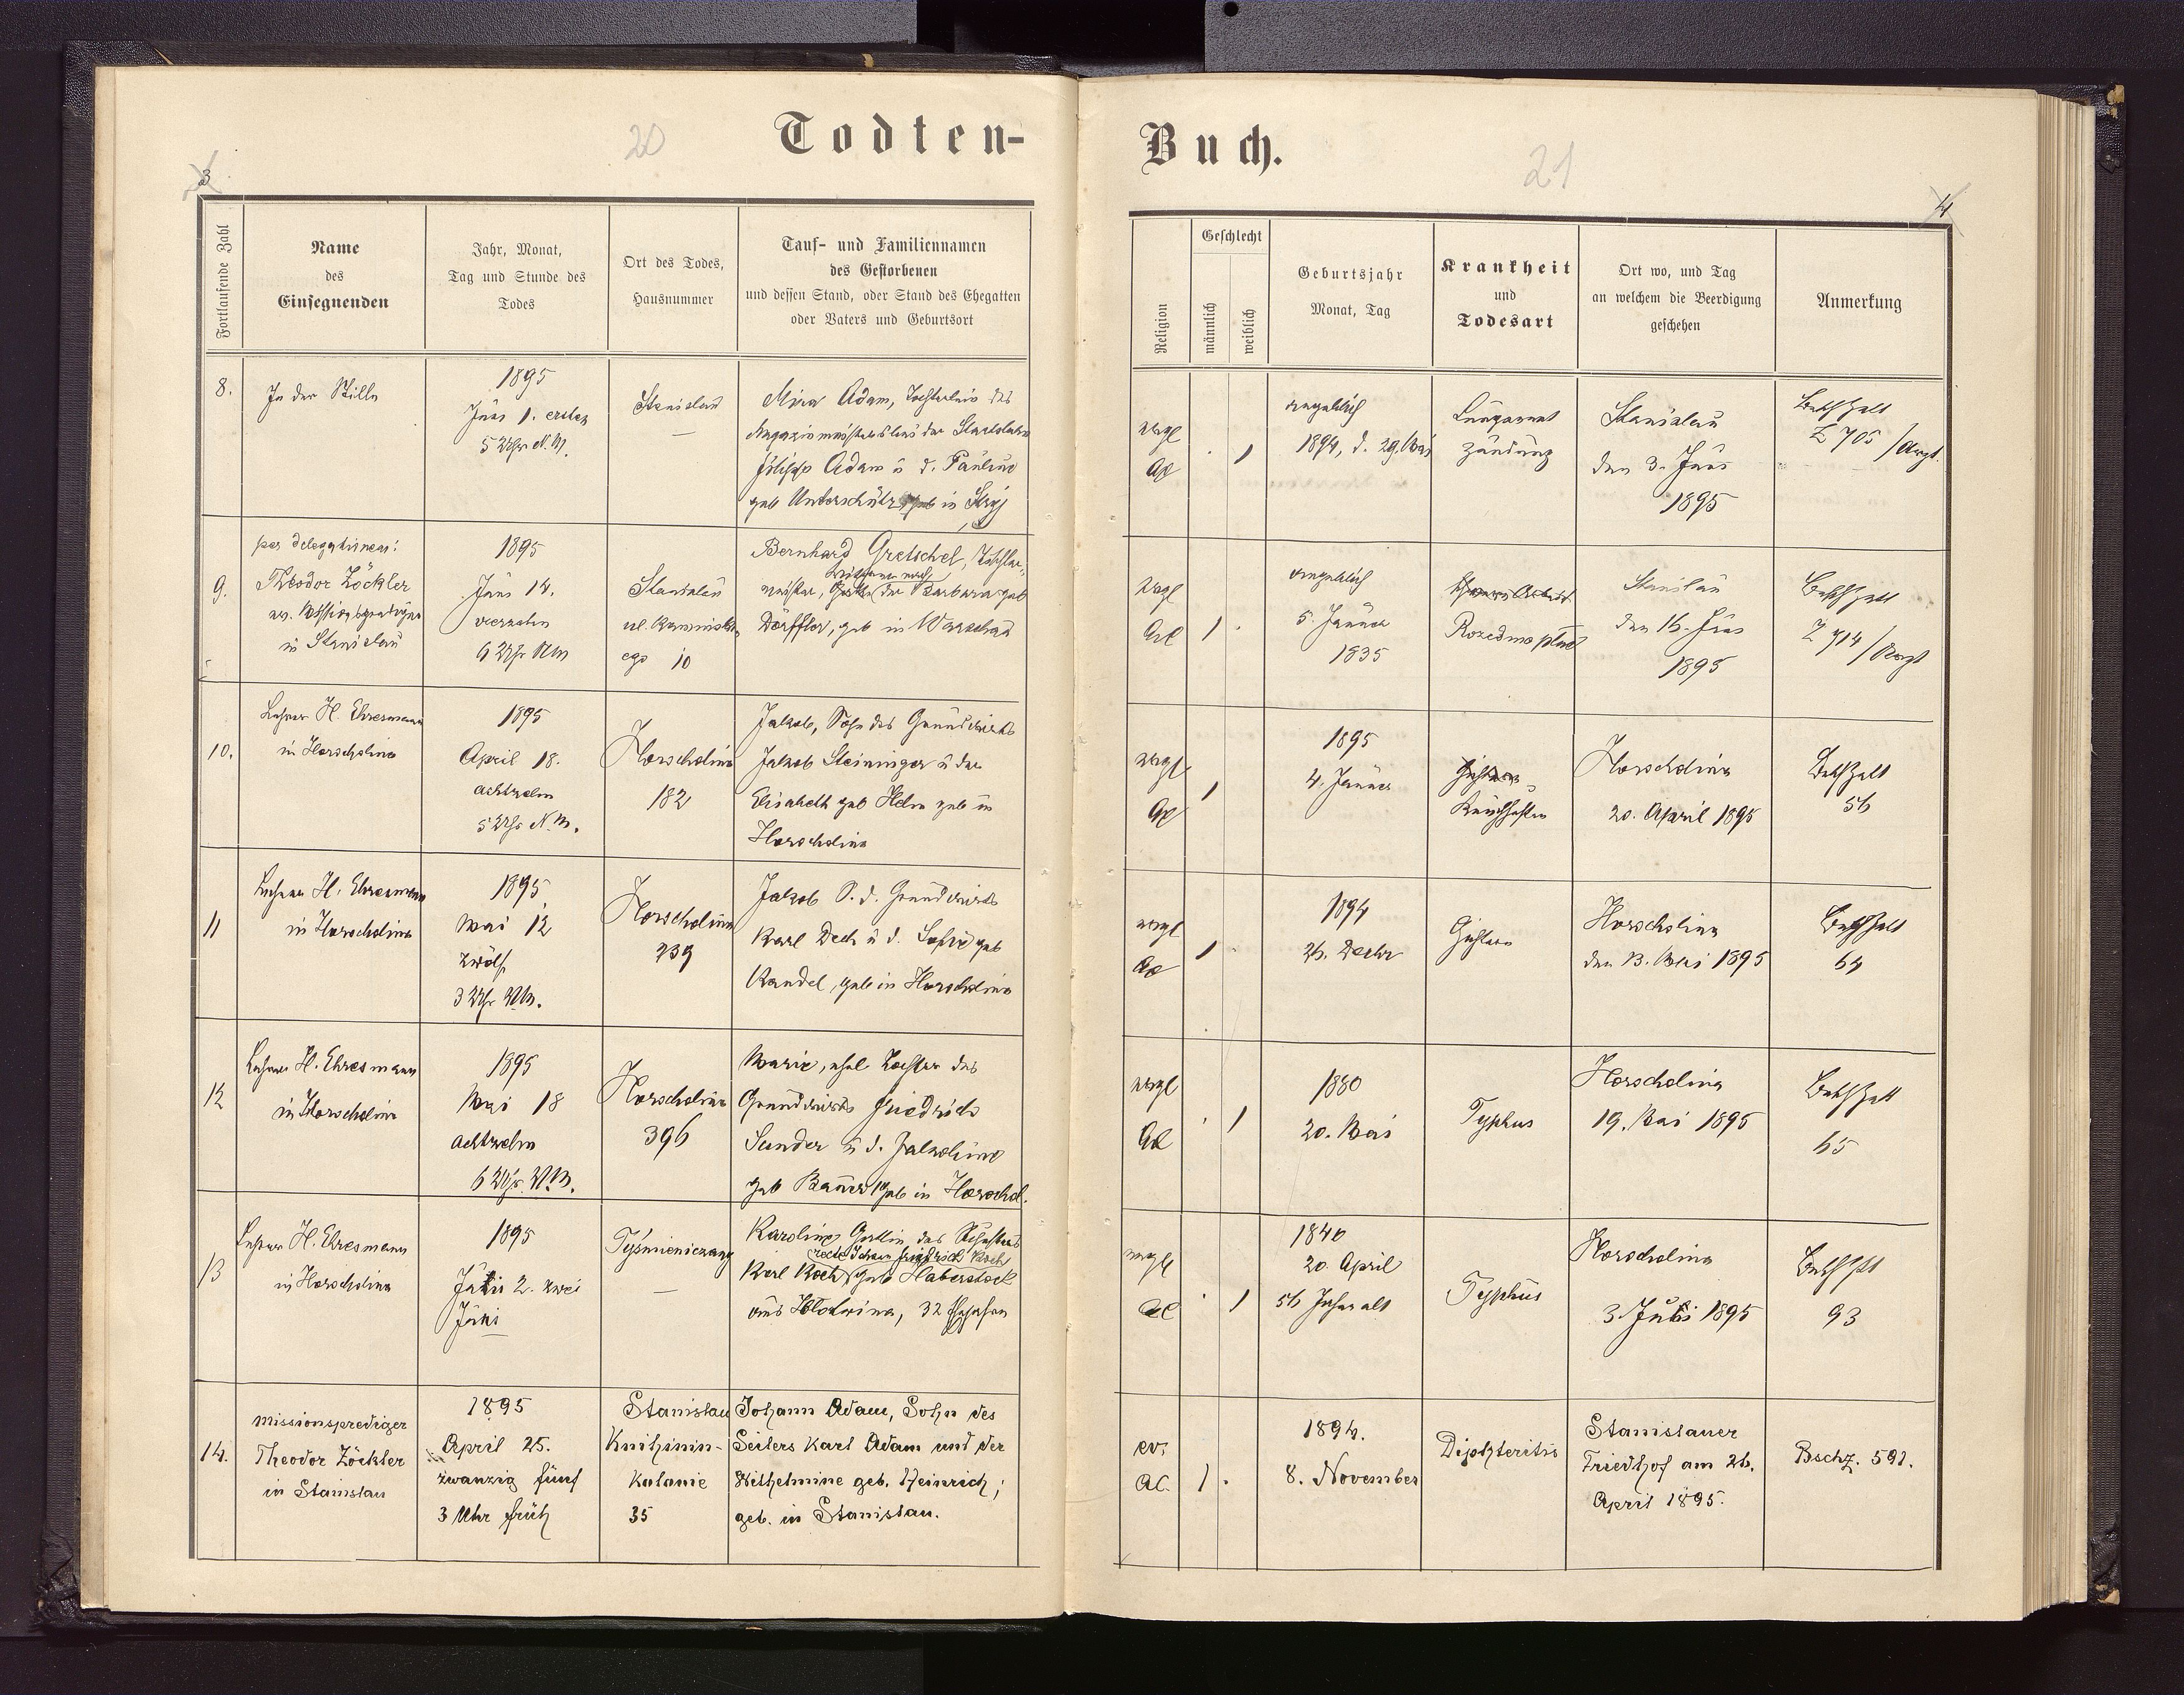 20
Todten-
3
Fortlaufende Zahl
Name
des
Einsegnenden
Jahr, Monat,
Tag und Stunde des
Todes
Ort des Todes,
Hausnummer
Tauf- und Familiennamen
des Gestorbenen
und dessen Stand, oder Stand des Ehegatten
oder Vaters und Geburtsort
8.
In der Stille
1895
Juni 1. erster
5 Uhr N.M.
Stanislau
—
Adam, Töchterlein des
Magazinmeisters der Staatsbahn
Adam u d. Pauline
geb Unterschütz geb in Stryj
9.
per delegationem:
Theodor Zöckler
ev. Missionsprediger
in Stanislau
1895
Juni 14.
vierzehn
6 Uhr NM
Stanislau
ul. Kaminskie
ego 10
Bernhard Gretschel, Tischler-
meister, der Barbara geb
Dörffler, geb in Warschau
10.
Lehrer H. Ehresmann
in Horocholina
1895
April 18.
achtzehn
5 Uhr N.M.
Horocholina
182
Jakob, Sohn des Grundwirts
Jakob Steininger u der
Elisabeth geb Helm geb in
Horocholina
11
Lehrer H. Ehresmann
in Horocholina
1895
Mai 12
zwölf
3 Uhr NM.
Horocholina
239
Jakob S. d. Grundwirts
Karl Dech u d. Sofie geb
Kandel, geb in Horocholina
12
Lehrer H. Ehresmann
in Horocholina
1895
Mai 18
achtzehn
6 Uhr N.M.
Horocholina
396
Marie, ehel Tochter des
Grundwirts Friedrich
Sunder u d. Jakobine
geb Bauer geb in Horochol.
13
Lehrer H. Ehresmann
in Horocholina
1895
Juni 2. zwei
Juni
Tyśmieniczany
—
Karoline Gattin des Schusters
recte Johann Friedrich Koch
Karl Koch geb Haberstock
aus 32
14.
Missionsprediger
Theodor Zöckler
in Stanislau
1895
April 25.
zwanzig fünf
3 Uhr früh
Stanislau
Knihinin-
Kolonie
35
Johann Adam, Sohn des
Seilers Karl Adam und der
Wilhelmine geb. Heinrich;
geb. in Stanislau.
Buch.
21
4
Religion
Geschlecht
männlich
weiblich
Geburtsjahr
Monat, Tag
Krankheit
und
Todesart
Ort wo, und Tag
an welchem die Beerdigung
geschehen
Anmerkung
evgl
AC
1
angeblich
1894, d. 29. Mai
Lungenent
zündung
Stanislau
den 3. Juni
1895
Z 705
evgl
AC
1
angeblich
5. Jänner
1835
Rozedma płuc
Stanislau
den 16. Juni
1895
Z 714
evgl
AC
1
1895
4. Jänner
Keuchhusten
Horocholina
20. April 1895
56
evgl
AC
1
1894
26. Decbr
Gichter
Horocholina
den 13. Mai 1895
64
evgl
AC
1
1880
20. Mai
Typhus
Horocholina
19. Mai 1895
65
evgl
AC
1
1840
20. April
Jahre alt
Typhus
Horocholina
1895
93
ev.
AC.
1
1894.
8. November
Diphteritis
Stanislauer
Friedhof am 26.
April 1895.
Bschz. 591.